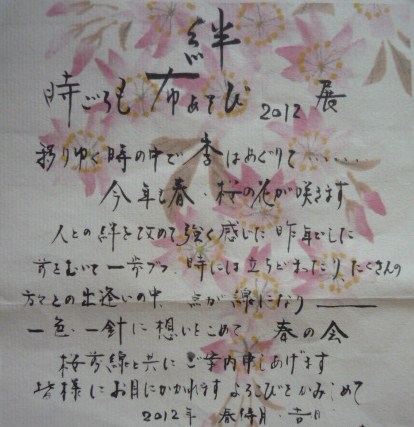 絆
時ごろも 布あそび 2012 展
移りゆく時の中で 季はめぐりて・・・・・・
今年も春・桜の花が咲きます
人との絆を改めて強く感じた昨年でした
前をむいて一歩づつ、時には立ちどまったり、たくさんの
方々との出逢いの中、点が線になり ――
一色・一針に想いをこめて 春の会
桜前線と共にご案内申しあげます
皆様にお目にかかれます よろこびをかみしめて
2012年 春 月・吉日